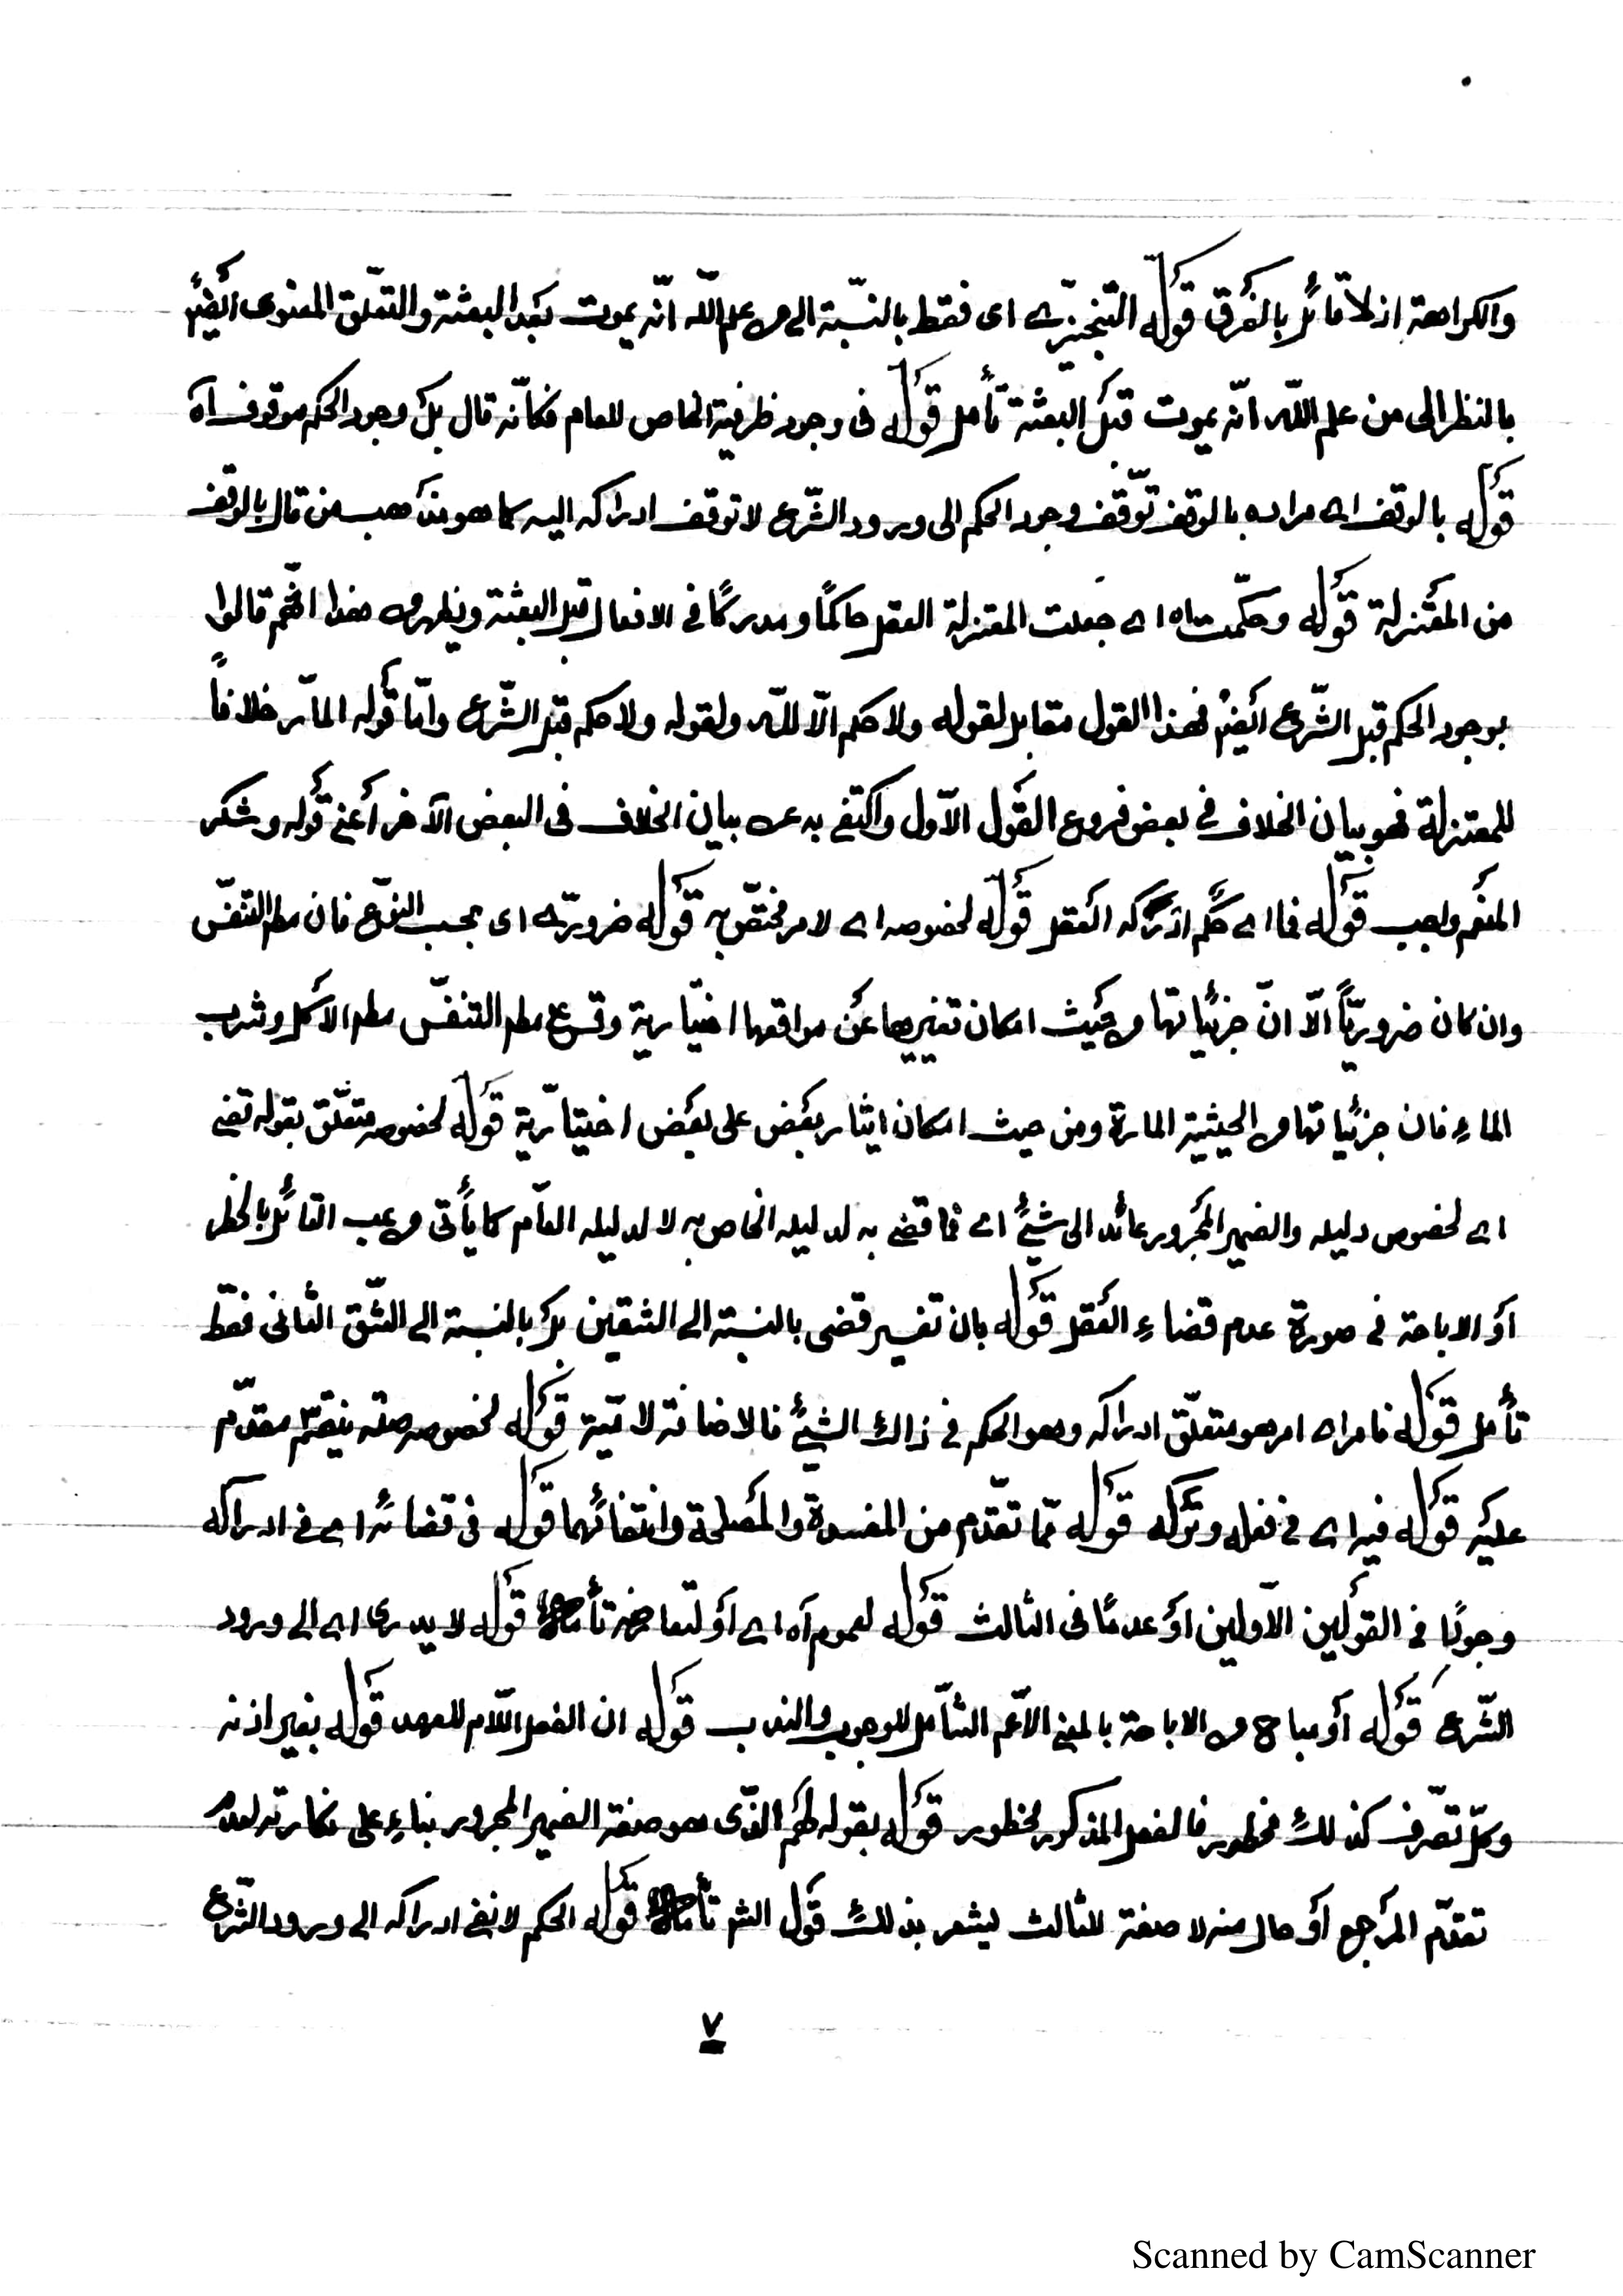 والكراهة اذ لا قائل بالفرق قوله التنجيزى اى فقط بالنسبة الى من علم الله انّه يموت بعد البعثة والتعلّق المعنوى ايضًا
بالنظر الى من علم الله انّه يموت قبل البعثة تأمل قوله فى وجود ظرفية الخاص للعام فكأنّه قال بل وجود الحكم موقوف اه
قوله بالوقف اى مراده بالوقف توّقف وجود الحكم الى ورود الشّرع لا توقف ادراكه اليه كما هو مذهب من قال بالوقف
من المعتزلة قوله وحكّمت اه اى جعلت المعتزلة العقل حاكمًا ومدركًا فى الافعال قبل البعثة ويظهر من هذا انّهم قالوا
بوجود الحكم قبل الشّرع ايضًا فهذا القول مقابل لقوله ولا حكم الّا للّه ولقوله ولا حكم قبل الشّرع وامّا قوله المارّ خلافاً
للمعتزلة فهو بيان الخلاف فى بعض فروع القول الاّول واكتفى به عن بيان الخلاف فى البعض الآخر أعنى قوله وشكر
المنعم واجب قوله فما اى حكم ادركه العقل قوله لخصوصه اى لامر مختصّ به قوله ضرورىّ اى بحسب النوّع فان مطلق التنفّس
وان كان ضروريّاً الّا انّ جزئياتها من حيث امكان تغييرها عن مواقعها اختيارية وقس على مطلق التنفّس مطلق الاكل وشرب
الماء فان جزئياتها من الحيثية المارة ومن حيث امكان ايثار بعض على بعض اختياريّة قوله لخصوصه متعلّق بقوله قضى
اى لخصوص دليله والضمير المجرور عائد الى شئ اى فما قضى به لدليله الخاص به لا لدليله العامّ كما يأتى من القائل بالحظر
أو الاباحة فى صورة عدم قضاء العقل قوله بان تفسير قضى بالنسبة الى الشقين بل بالنسبة الى الشّق الثانى فقط
تأمل قوله فامر اى امر هو متعلّق ادراكه وهو الحكم فى ذالك الشئ فالاضافة لاميّة قوله لخصوصه صلة يقضى مقدّم
عليه قوله فيه اى فى فعله وتركه قوله ممّا تقدّم من المفسدة والمصلحة وانتفائهما قوله فى قضائه اى فى ادراكه
وجودًا فى القولين الاّولين أو عدمًا فى الثالث قوله لعموم اه اى أو لتعارض تأمل قوله لا يدرى اى الى ورود
الشّرع قوله أو مباح من الاباحة بالمعنى الاّعم الشّامل للوجوب والندب قوله ان الفعل اللّام للعهد قوله بغير اذنه
وكلّ تصّرف كذلك محظور فالفعل المذكور محظور قوله بقوله لهم الذّى هو صفة الضمير المجرور بناء على نكارته لعدم
تقدّم المرجع أو حال منه لا صفة للثالث ليشعر بذلك قول الشر تأمل قوله الحكم لا نفى ادراكه الى ورود الشّرع
٧
Scanned by CamScanner